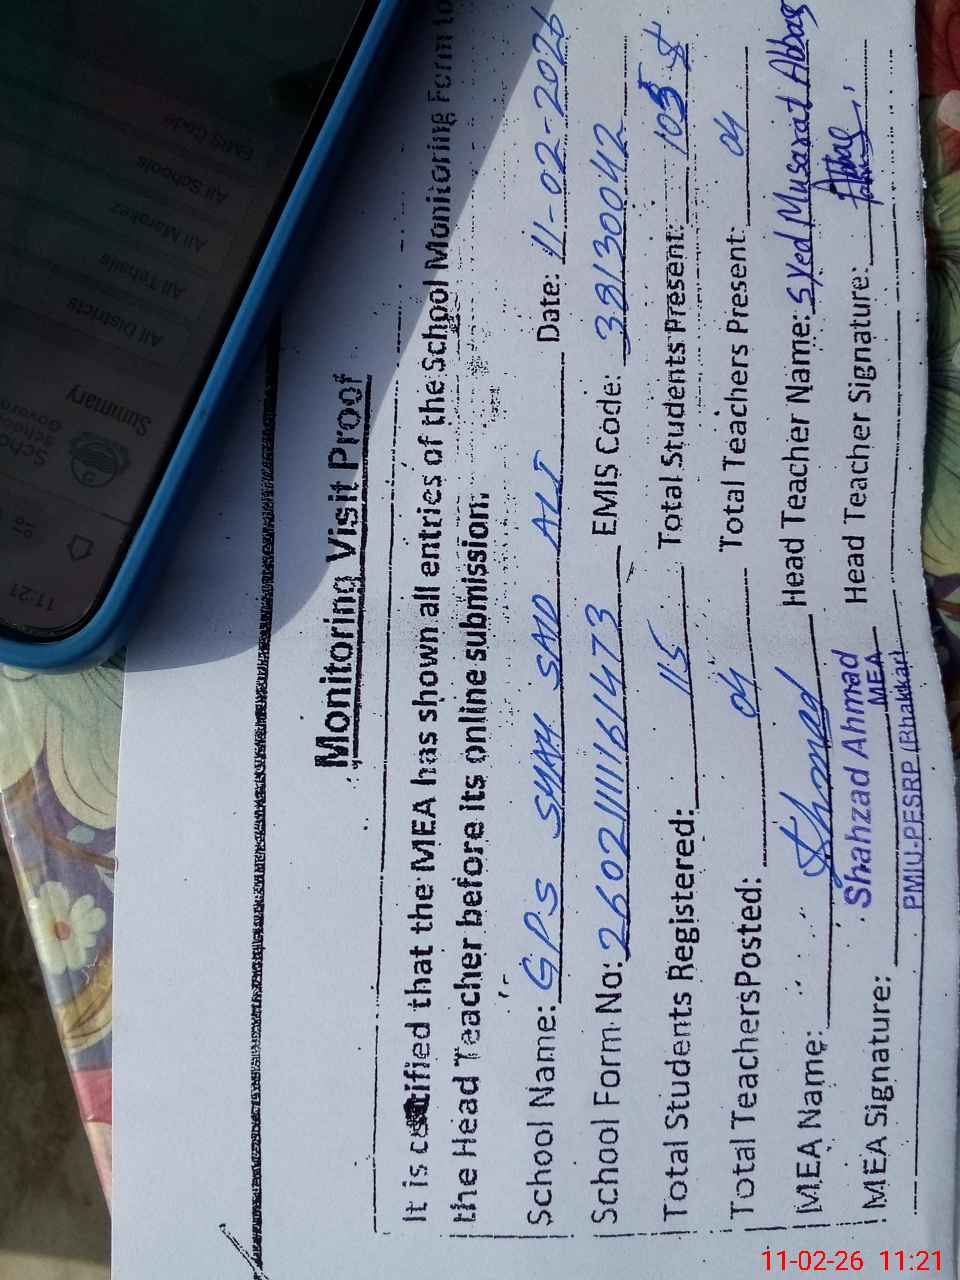 Monitoring Visit Proof
It is certified that the MEA has shown all entries of the School Monitoring Form to
the Head Teacher before its online submission.
School Name: GPS SHAH SAID ALI Date: 11-02-2026
School Form No: 26021111161473 EMIS Code: 38130042
Total Students Registered: 115 Total Students Present: 105
Total Teachers Posted: 04 Total Teachers Present: 04
MEA Name: Ahmad Head Teacher Name: Syed Musarat Abbas
Shahzad Ahmad
MEA
PMIU-PESRP (Bhakkar)
MEA Signature: Head Teacher Signature: Abbas
11:21
Summary
All Districts
All Tehsils
All Markez
All Schools
EMIS Code
11-02-26 11:21